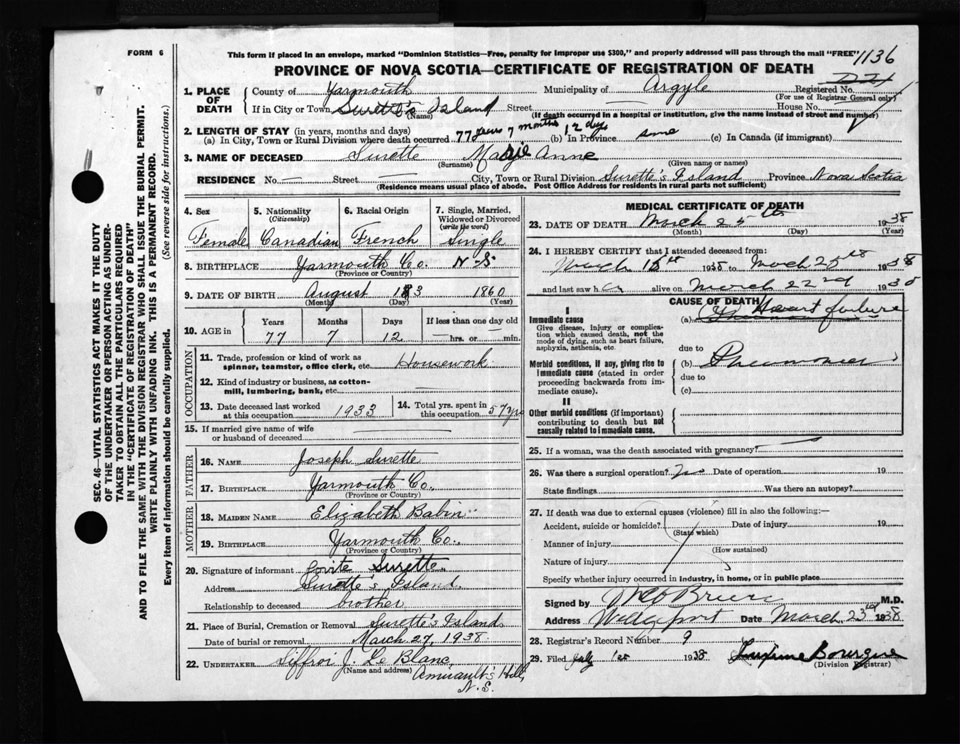 FORM 6
This form if placed in an envelope, marked "Dominion Statistics—Free, penalty for improper use $300," and properly addressed will pass through the mail "FREE"
1136
PROVINCE OF NOVA SCOTIA—CERTIFICATE OF REGISTRATION OF DEATH
1. PLACE OF DEATH County of Yarmouth Municipality of Argyle Registered No.
(For use of Registrar General only)
If in City or Town Surette's Island Street — House No.
(Name) (If death occurred in a hospital or institution, give the name instead of street and number)
2. LENGTH OF STAY (in years, months and days)
(a) In City, Town or Rural Division where death occurred 77 years 7 months 12 days (b) In Province same (c) In Canada (if immigrant)
3. NAME OF DECEASED Surette Marie Anne
(Surname) (Given name or names)
RESIDENCE No. — Street — City, Town or Rural Division Surette's Island Province Nova Scotia
(Residence means usual place of abode. Post Office Address for residents in rural parts not sufficient)
SEC. 46—VITAL STATISTICS ACT MAKES IT THE DUTY
OF THE UNDERTAKER OR PERSON ACTING AS UNDER-
TAKER TO OBTAIN ALL THE PARTICULARS REQUIRED
IN THE "CERTIFICATE OF REGISTRATION OF DEATH"
AND TO FILE THE SAME WITH THE DIVISION REGISTRAR WHO SHALL ISSUE THE BURIAL PERMIT.
WRITE PLAINLY WITH UNFADING INK. THIS IS A PERMANENT RECORD.
Every item of information should be carefully supplied. (See reverse side for instructions.)
4. Sex 5. Nationality 6. Racial Origin 7. Single, Married,
(Citizenship) Widowed or Divorced
(write the word)
Female Canadian French Single
8. BIRTHPLACE Yarmouth Co. N S
(Province or Country)
9. DATE OF BIRTH August 13 1860
(Month) (Day) (Year)
10. AGE in Years Months Days If less than one day old
77 7 12 hrs. or min.
OCCUPATION
11. Trade, profession or kind of work as
spinner, teamster, office clerk, etc. Housework
12. Kind of industry or business, as cotton-
mill, lumbering, bank, etc.
13. Date deceased last worked
at this occupation 1933
14. Total yrs. spent in
this occupation 57 yrs
15. If married give name of wife
or husband of deceased
FATHER
16. NAME Joseph Surette
17. BIRTHPLACE Yarmouth Co.
(Province or Country)
MOTHER
18. MAIDEN NAME Elizabeth Babin
19. BIRTHPLACE Yarmouth Co.
(Province or Country)
20. Signature of informant Surette
Address Surette's Island
Relationship to deceased brother
21. Place of Burial, Cremation or Removal Surette's Island
Date of burial or removal March 27, 1938
22. UNDERTAKER Siffroi J. Le Blanc,
(Name and address) Amirault's Hill,
N. S.
MEDICAL CERTIFICATE OF DEATH
23. DATE OF DEATH March 25th 1938
(Month) (Day) (Year)
24. I HEREBY CERTIFY that I attended deceased from:
March 15th 1938 to March 25th 1938
and last saw her alive on March 22nd 1938
CAUSE OF DEATH
I
Immediate cause (a) Heart failure
Give disease, injury or complica-
tion which caused death, not the
mode of dying, such as heart failure,
asphyxia, asthenia, etc. due to
Morbid conditions, if any, giving rise to (b) Pneumonia
immediate cause (stated in order due to
proceeding backwards from im-
mediate cause). (c)
II
Other morbid conditions (if important)
contributing to death but not
causally related to immediate cause.
25. If a woman, was the death associated with pregnancy?
26. Was there a surgical operation? No Date of operation 19
State findings Was there an autopsy?
27. If death was due to external causes (violence) fill in also the following:—
Accident, suicide or homicide? Date of injury 19
(State which)
Manner of injury
(How sustained)
Nature of injury
Specify whether injury occurred in industry, in home, or in public place
Signed by M.D.
Address Wedgeport Date March 23rd 1938
28. Registrar's Record Number 9
29. Filed July 1st 1938 Bourque
(Division Registrar)